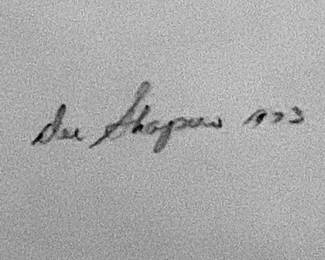 Sue Shapiro 1973